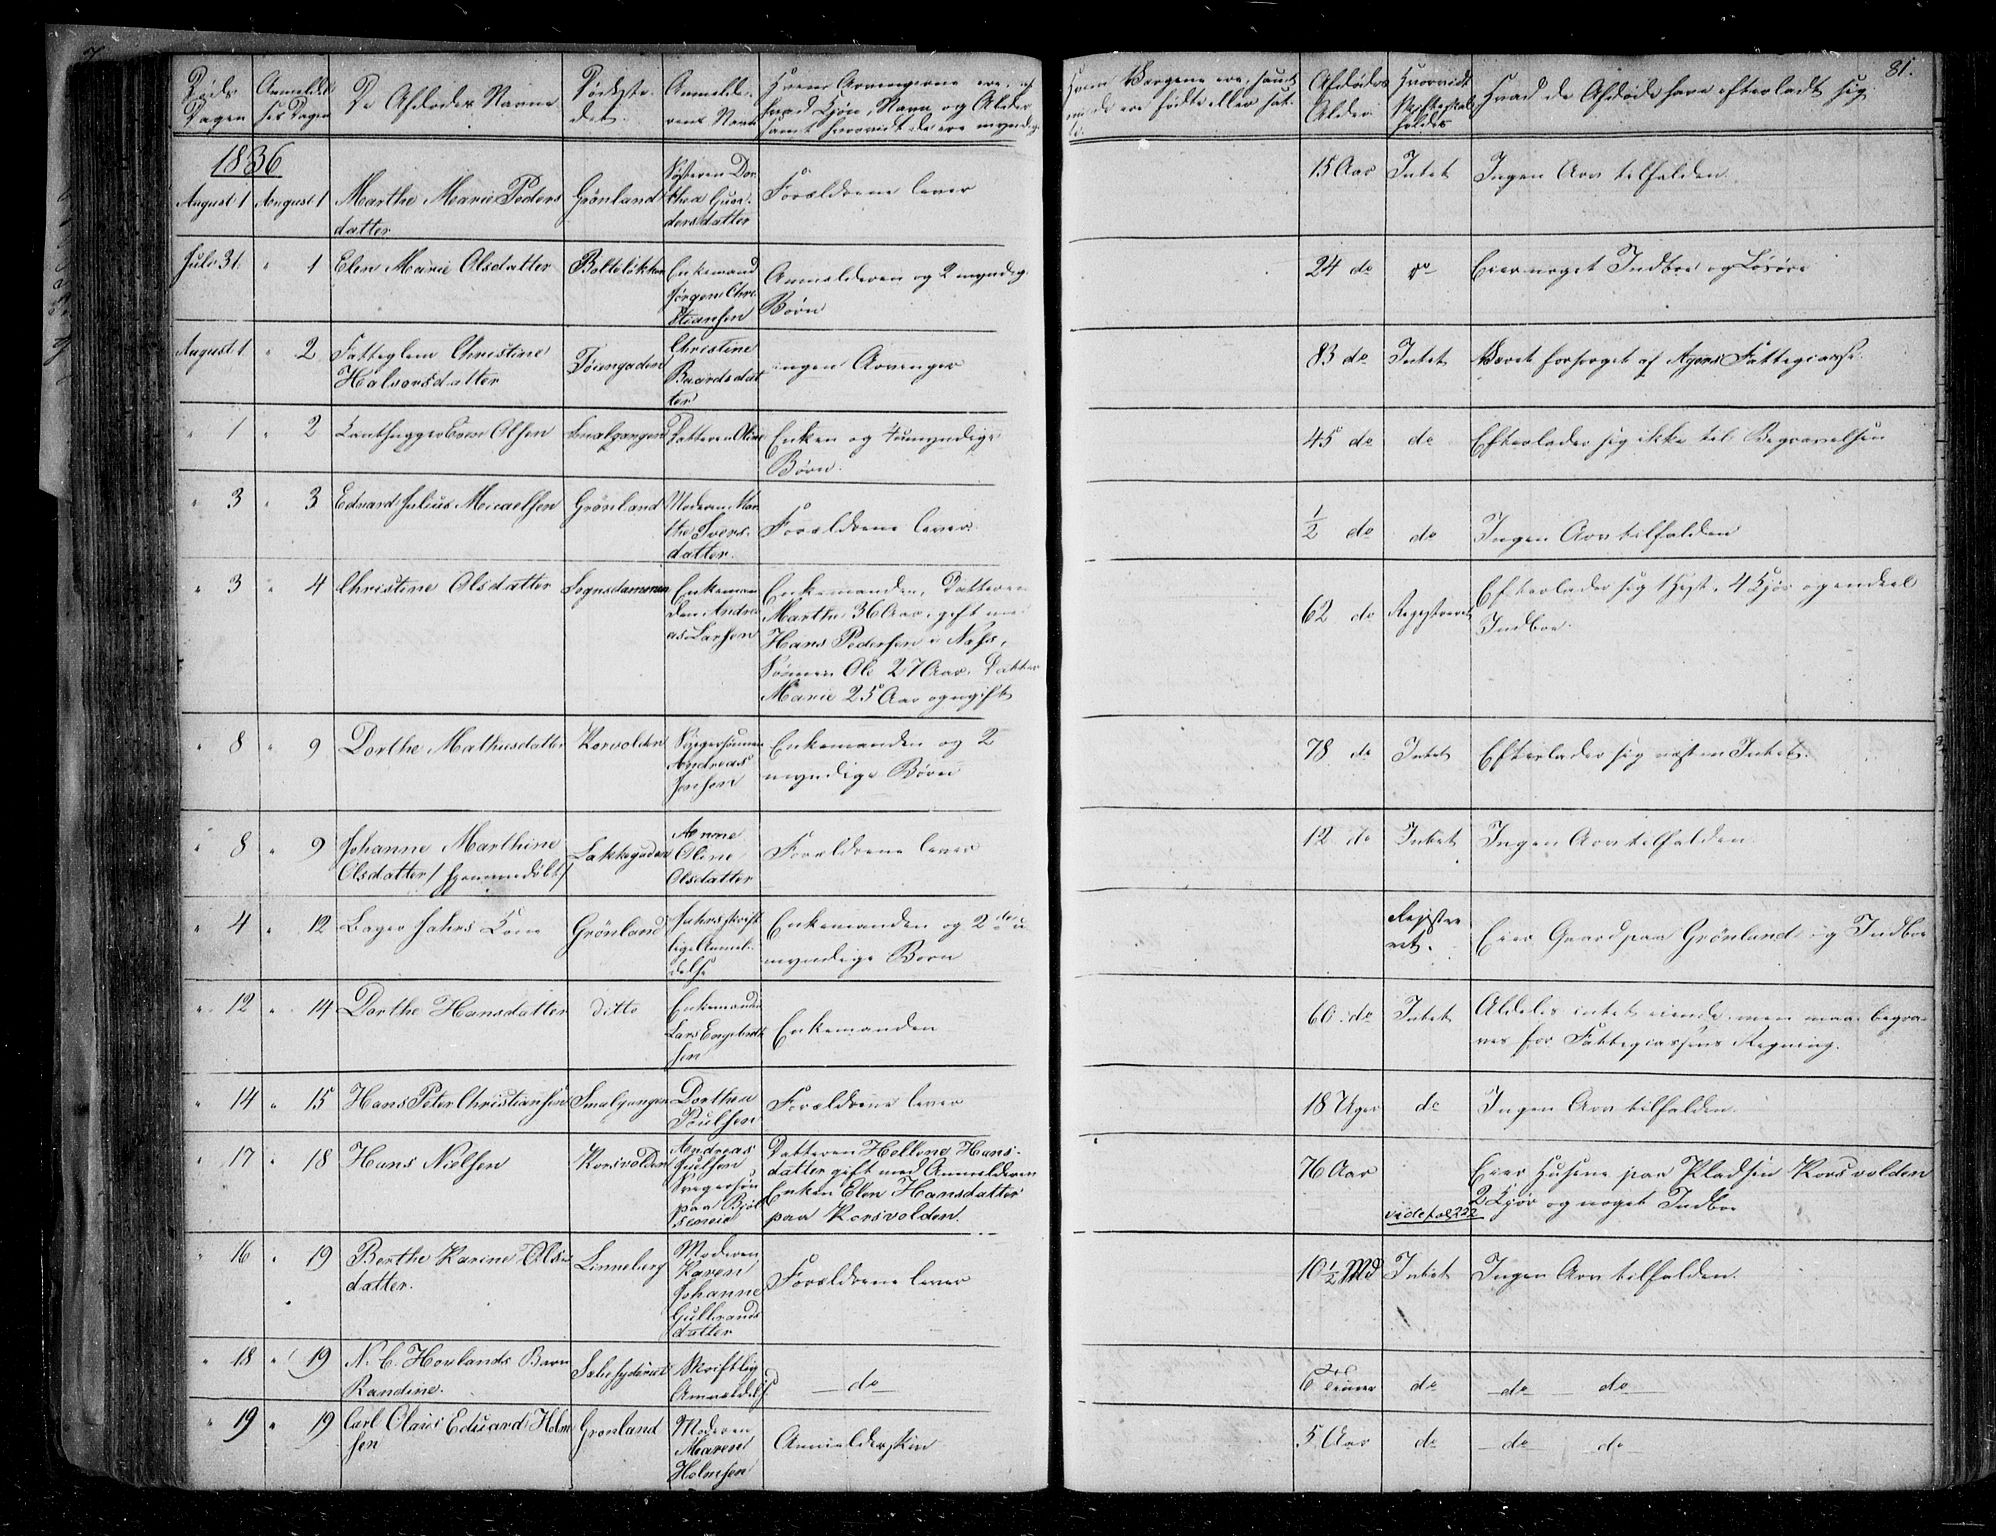 81.
Døds Dagen
Anmeldel ses Dagen
De Afdødes Navne
Dødste det
Anmelde rens Navn
Hvem Arvingerne ere, af hvad Kjøn, Navn og Alder samt hvorvidt de ere myndige
Hvem Værgerne ere, samt
ere fødte eller
Afdødes Alder
Hvorvidt
holdes
Hvad de Afdøde have efterladt sig
1836
August 1 August 1 Marthe Marie Peders datter Grönland Søsteren Dor thea datter Forældrene lever 15 Aar Intet Ingen Arv tilfalden
Juli 31. " 1 Elen Marie Olsdatter Bolteløkken Enkemand Jørgen Chri stiansen Anmelderen og 2 myndig. Børn 24 do do Eier noget Indboe og Løsøre
August 1 " 2 Fatteglem Christine Halvorsdatter Töiengaden Christine Baardsdat ter ingen Arvinger 83 do Intet Været forsørget af Agers Fattigcasse
" 1 " 2 Olsen Smalgangen Datteren Oline Enken og 4 umyndige Børn. 45 do do Efterlader sig ikke til Begravelsen
" 3 " 3 Edvard Julius Micaelsen Grönland Moderen Mar the Ivers datter. Forældrene lever. 1/2 do do Ingen Arv tilfalden
" 3 " 4 Christine Olsdatter Sognsdammen Enkeman den Andre as Larsen Enkemanden, Datteren Marthe 36 Aar, gift med Hans Pedersen i Næss, Sønnen Ole 27 Aar, Datter Marie 25 Aar og ugift 62 do Registreret Efterlader sig 1 Hest, 4 Kjør og endeel Indboe.
" 8 " 9 Dorthe Mathisdatter Korsvolden Svigersønnen Andreas Jensen Enkemanden og 2 myndige Børn 78 do Intet Efterlader sig næsten Intet.
" 8 " 9 Johanne Marthine Olsdatter / hjemmedøbt / Lakkegaden Anne Oline Olsdatter Forældrene lever 12 do Intet Ingen Arv tilfalden.
" 4 " 12 Bager Jahrs Kone Grönland Jahrs skrift lige Anmel delse Enkemanden og 2 myndige Børn Registre ret. Eier Gaard paa Grönland og Indboe
" 12 " 14 Dorthe Hansdatter ditto Enkemanden Lars Engebrekt sen Enkemanden 60 do Intet Aldeles intet eiende men maa begra ves for Fattigcassens Regning.
" 14 " 15 Hans Peter Christiansen Smalgangen Dorthea Poulsen Forældrene lever 18 Uger do Ingen Arv tilfalden.
" 17 " 18 Hans Nielsen Korsvolden Andreas Svigersøn paa Bjøl Datteren Hellene Hans datter gift med Anmelderen Enken Elen Hansdatter paa Korsvolden. 76 Aar vide fol 222 Eier Husene paa Pladsen Korsvolden 2 Kjør og noget Indboe
" 16 " 19 Berthe Karine Ols datter. Linneberg Moderen Karen Johanne Gulbrands datter Forældrene lever 10 1/2 Md Intet Ingen Arv tilfalden.
" 18 " 19 N. C. Hovlands Barn Randine. Skriftlig Anmeldelse — do — 6 do — do — do —
" 19 " 19 Carl Olaus Eduard Holm sen Grönland Moderen Maren Holmsen Anmeldersken 5 Aar do — do — do —